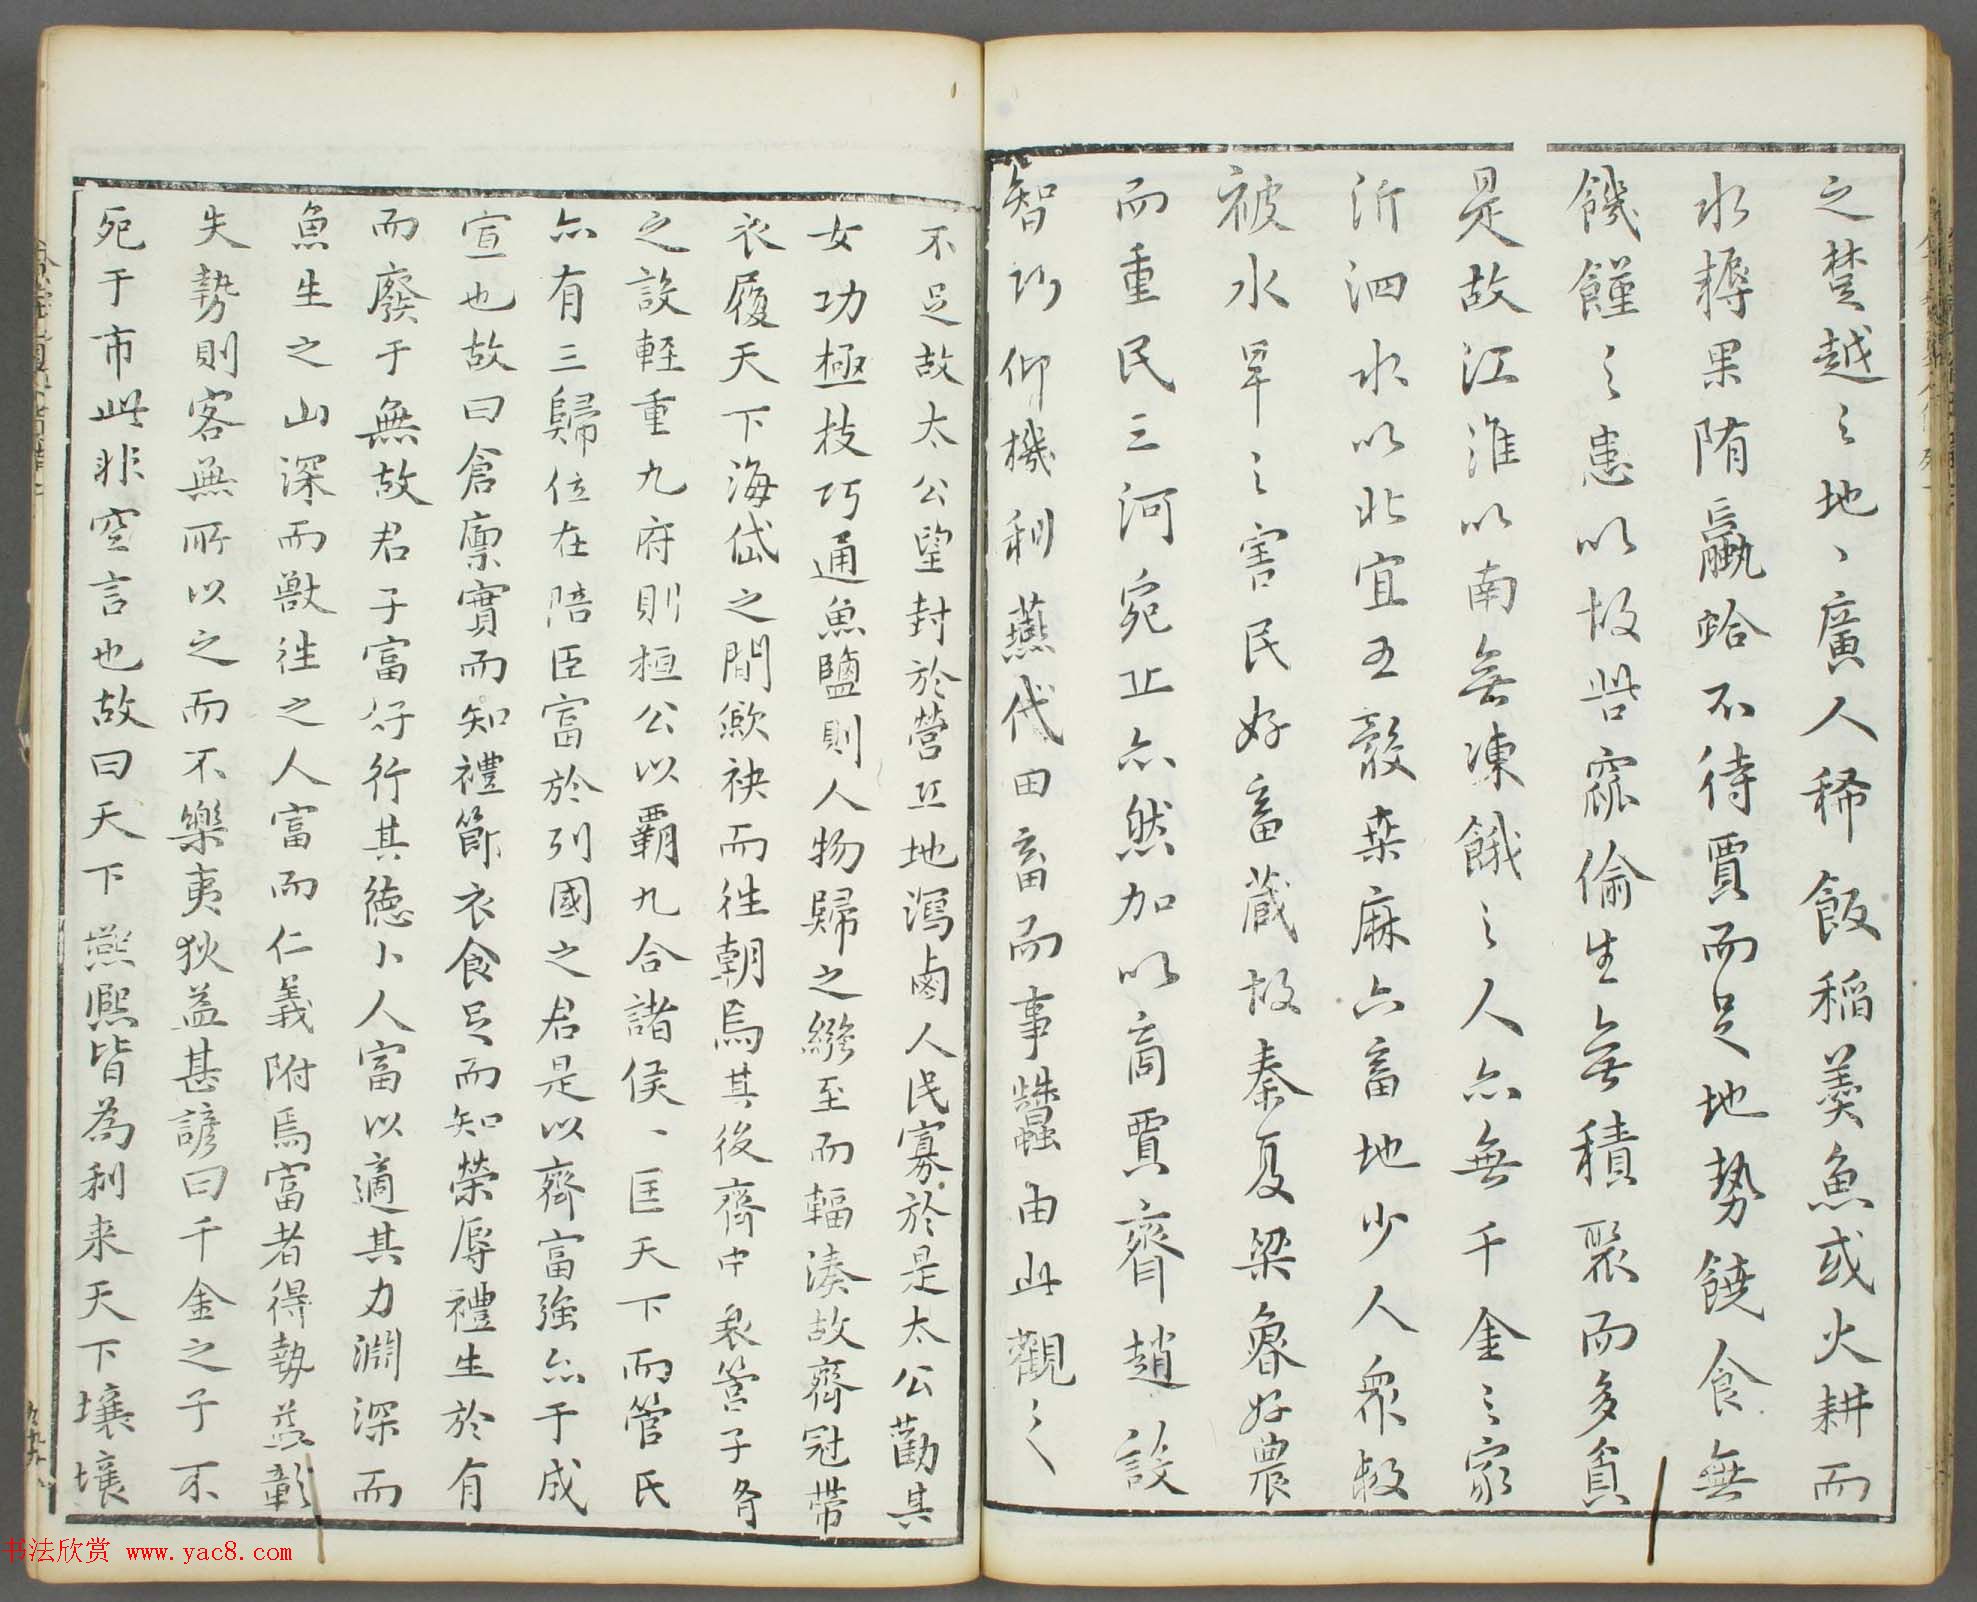 之楚越之地、廣人稀飯稻羹魚或火耕而
水耨果陏蠃蛤不待賈而足地勢饒食無
饑饉之患以故呰窳偷生無積聚而多貧
是故江淮以南無凍餓之人亦無千金之家
沂泗水以北宜五穀桑麻六畜地少人衆数
被水旱之害民好畜蔵故秦夏梁魯好農
而重民三河宛丘亦然加以商賈齊趙設
智巧仰機利燕代田畜而事蠶由此觀之
不足故太公望封於營丘地瀉鹵人民寡於是太公勸其
女功極技巧通魚鹽則人物歸之繦至而輻湊故齊冠帶
衣履天下海岱之間歛袂而往朝焉其後齊中衰管子脩
之設輕重九府則桓公以覇九合諸侯、匡天下而管氏
亦有三歸位在陪臣富於列國之君是以齊富強亦于成
宣也故曰倉廩實而知禮節衣食足而知榮辱禮生於有
而廢于無故君子富好行其德小人富以適其力淵深而
魚生之山深而獸往之人富而仁義附焉富者得勢益彰
失勢則客無所以之而不樂夷狄益甚諺曰千金之子不
死于市此非空言也故曰天下熙熙皆為利来天下壤壤
书法欣赏 www.yac8.com